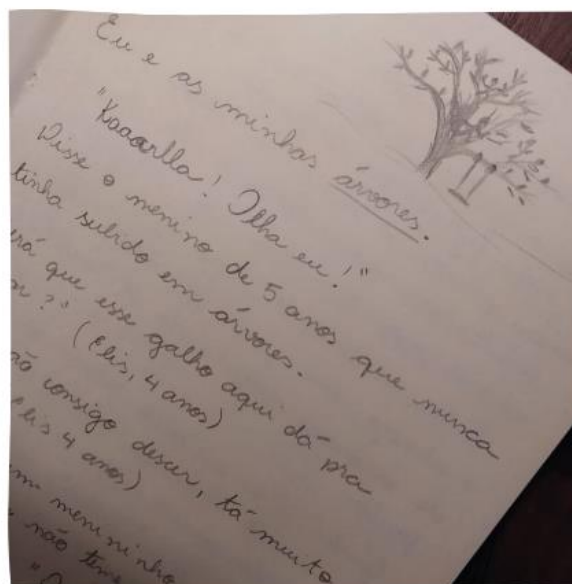 Eu e as minhas árvores.
"Kaaarlla! Olha eu!"
Disse o menino de 5 anos que nunca
tinha subido em árvores.
erá que esse galho aqui dá pra
?" (Elis, 4 anos)
ão consigo descer, tá muito
lis 4 anos)
menininho
não